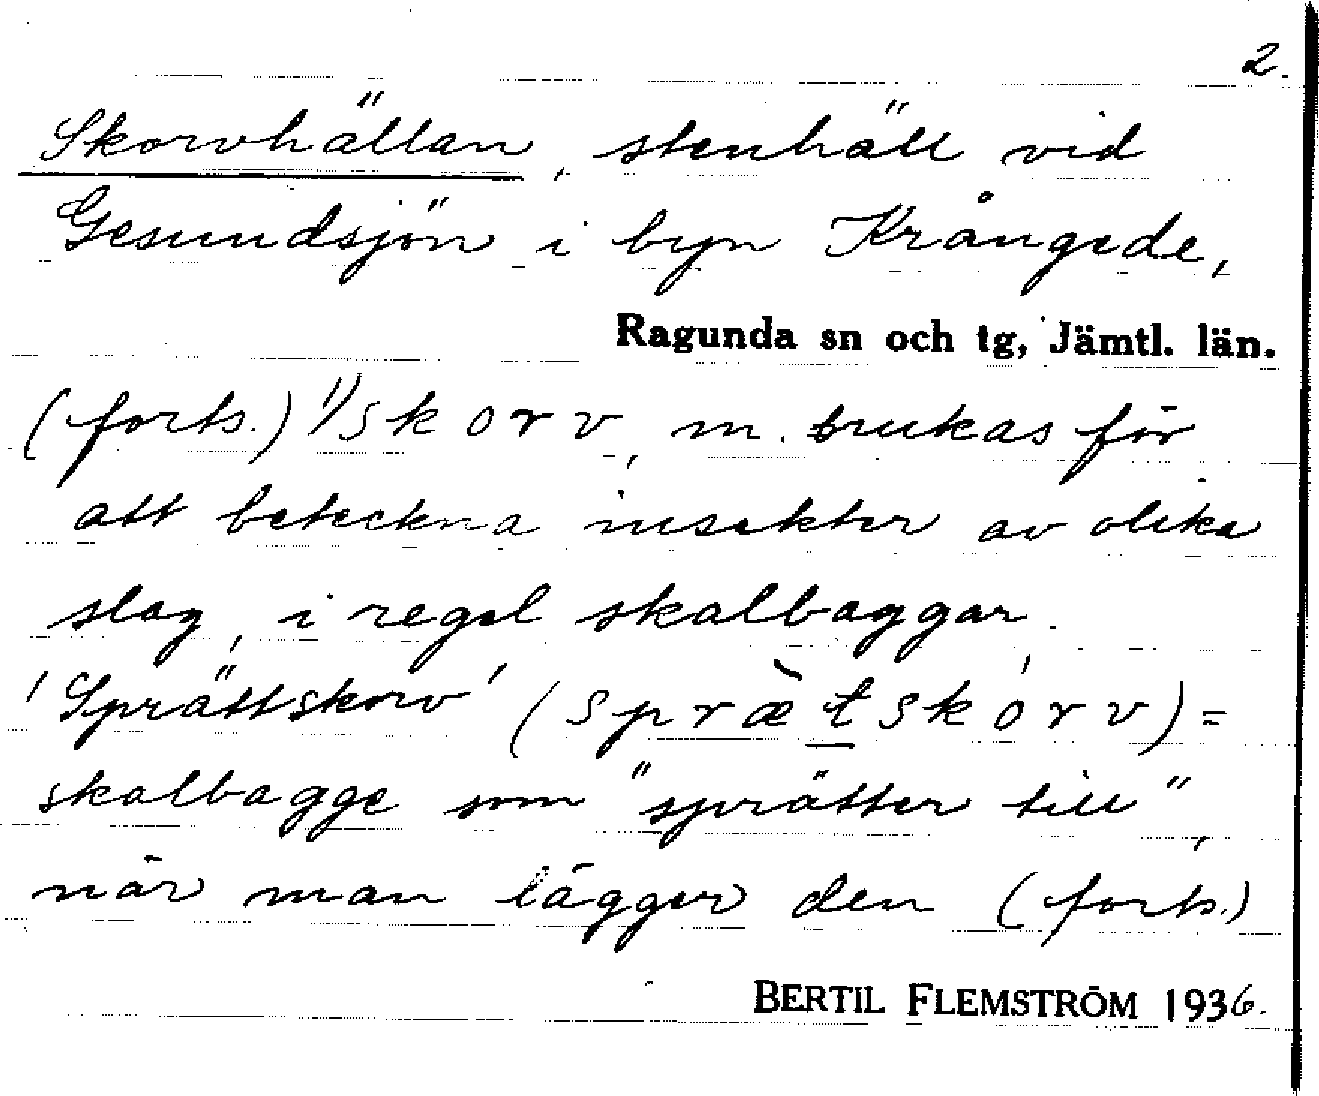 2.
Skorvhällan, stenhäll vid
Gesundsjön i byn Krångede,
Ragunda sn och tg, Jämtl. län.
(forts.) 1) skorv, m. brukas för
att beteckna insekter av olika
slag, i regel skalbaggar.
'Sprättskorv' (spræ̀tskórv) =
skalbagge som "sprätter till",
när man lägger den (forts.)
BERTIL FLEMSTRÖM 1936.